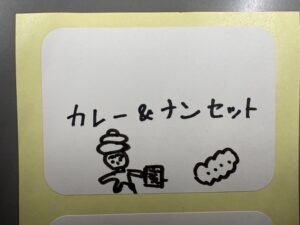 カレー&ナンセット